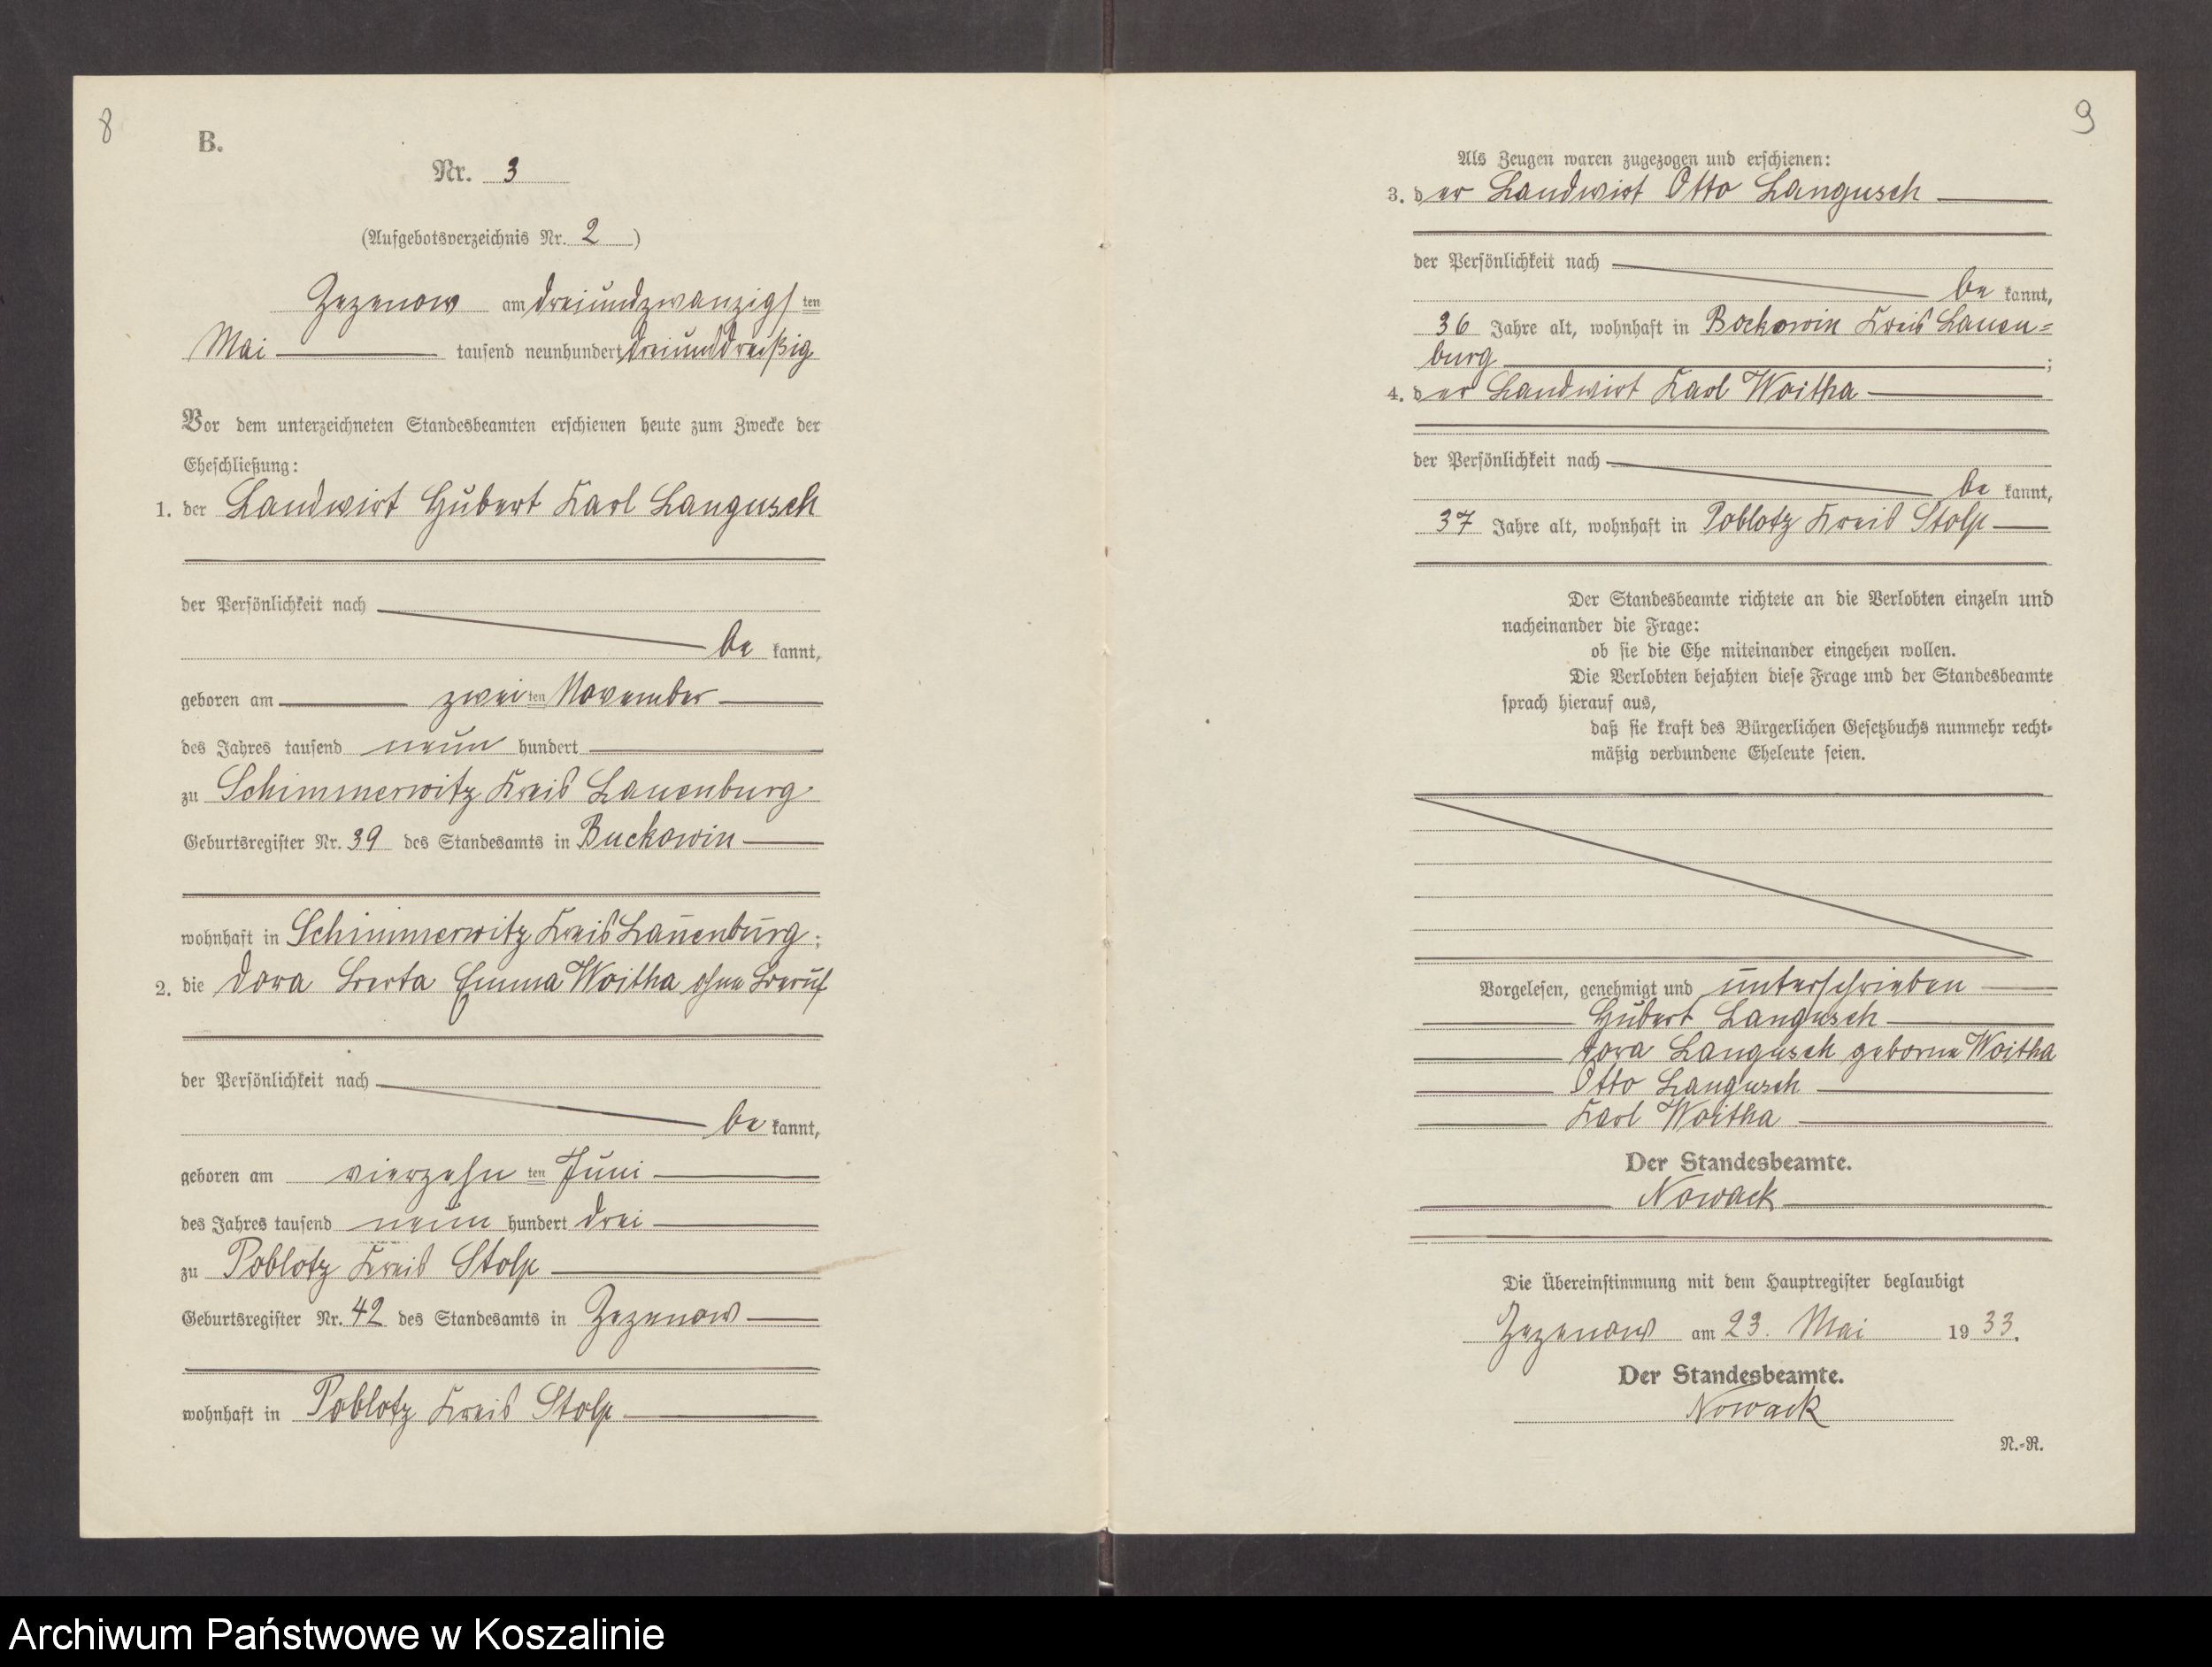 8
B.
Nr. 3
(Aufgebotsverzeichnis Nr. 2)
Zezenow am dreiundzwanzigsten
Mai tausend neunhundert dreiunddreißig
Vor dem unterzeichneten Standesbeamten erschienen heute zum Zwecke der
Eheschließung:
1. der Landwirt Hubert Karl Langusch
der Persönlichkeit nach
be kannt,
geboren am zweiten November
des Jahres tausend neun hundert
zu Schimmerwitz Kreis Lauenburg
Geburtsregister Nr. 39 des Standesamts in Buckowin
wohnhaft in Schimmerwitz Kreis Lauenburg;
2. die Dora Berta Emma Woitha ohne Beruf
der Persönlichkeit nach
be kannt,
geboren am vierzehn ten Juni
des Jahres tausend neun hundert drei
zu Poblotz Kreis Stolp
Geburtsregister Nr. 42 des Standesamts in Zezenow
wohnhaft in Poblotz Kreis Stolp
9
Als Zeugen waren zugezogen und erschienen:
3. der Landwirt Otto Langusch
der Persönlichkeit nach
be kannt,
36 Jahre alt, wohnhaft in Bockowin Kreis Lauen=
burg;
4. der Landwirt Karl Woitha
der Persönlichkeit nach
be kannt,
37 Jahre alt, wohnhaft in Poblotz Kreis Stolp
Der Standesbeamte richtete an die Verlobten einzeln und
nacheinander die Frage:
ob sie die Ehe miteinander eingehen wollen.
Die Verlobten bejahten diese Frage und der Standesbeamte
sprach hierauf aus,
daß sie kraft des Bürgerlichen Gesetzbuchs nunmehr recht-
mäßig verbundene Eheleute seien.
Vorgelesen, genehmigt und unterschrieben
Hubert Langusch
Dora Langusch geborne Woitha
Otto Langusch
Karl Woitha
Der Standesbeamte.
Nowack
Die Übereinstimmung mit dem Hauptregister beglaubigt
Zezenow am 23. Mai 1933.
Der Standesbeamte.
Nowack
N.-R.
Archiwum Państwowe w Koszalinie